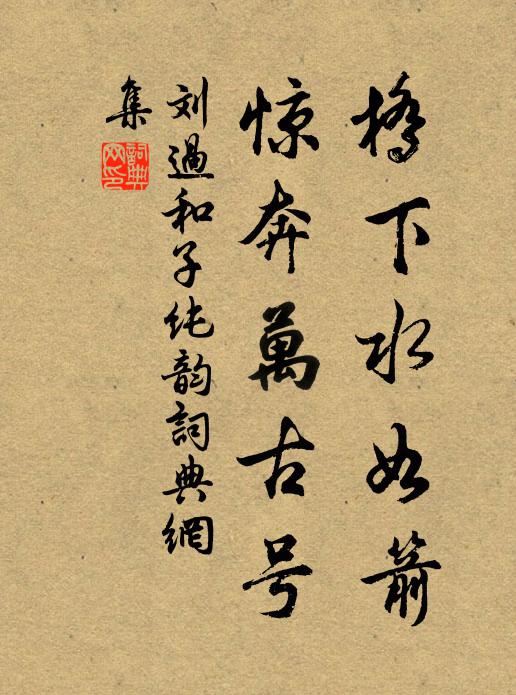 橋下水如箭
惊奔萬古号
刘過和子纯韵詞典網
集
詞典網印